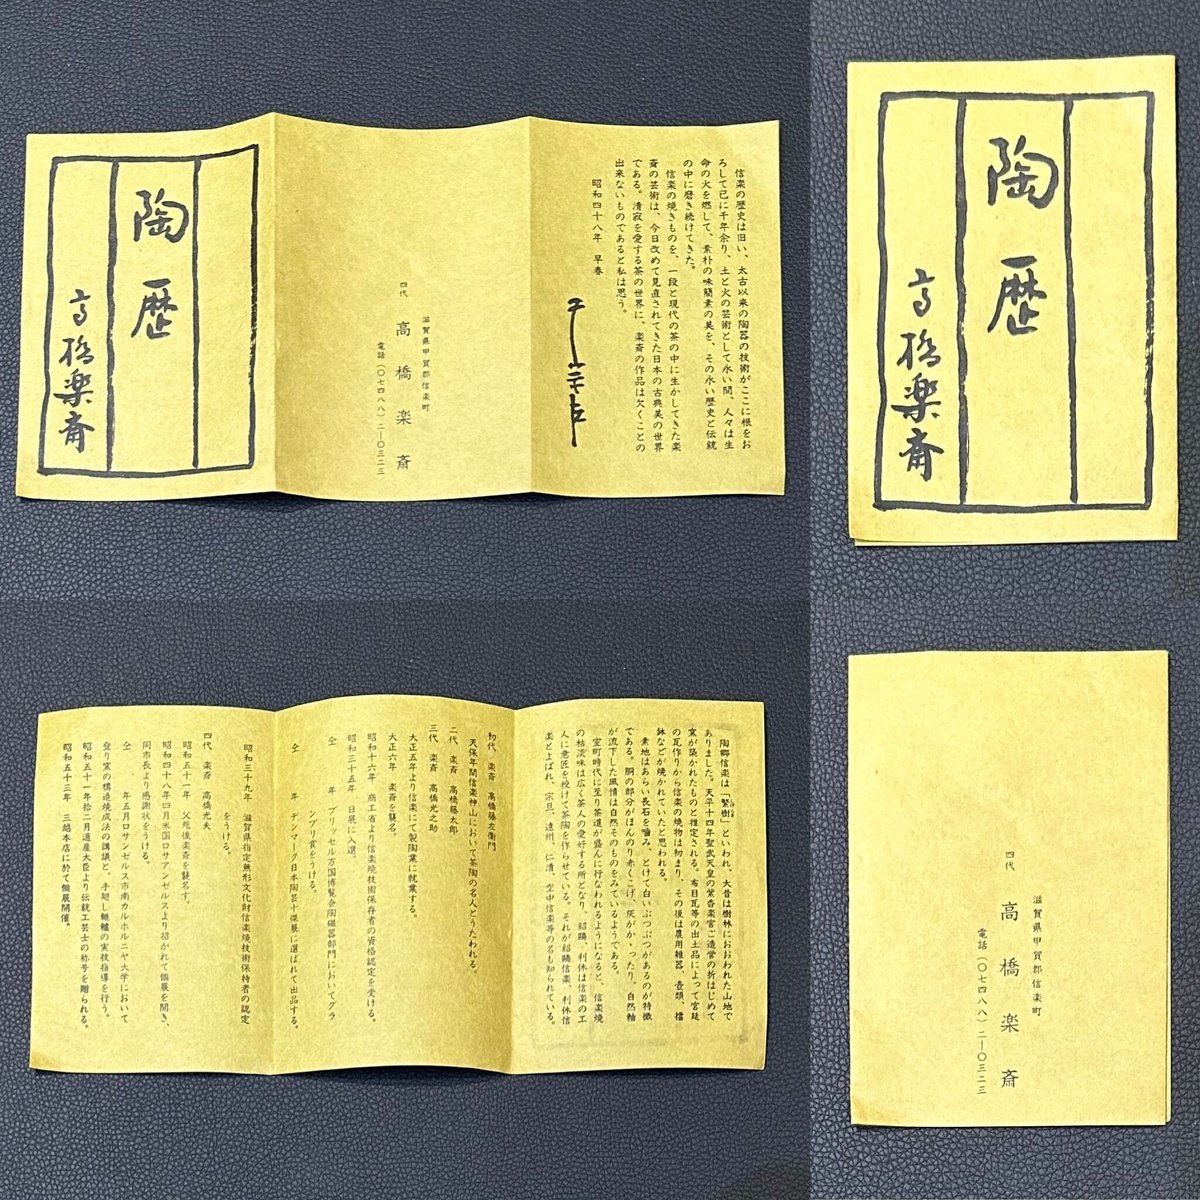 陶歴
高橋楽斎
滋賀県甲賀郡信楽町
四代 高橋楽斎
電話(〇七四八八)二ー〇三二三
信楽の歴史は旧い、太古以来の陶器の技術がここに根をお
ろして已に千年余り、土と火の芸術として永い間、人々は生
命の火を燃して、素朴の味簡素の美を、その永い歴史と伝統
の中に磨き続けてきた。
信楽の焼きものを、一段と現代の茶の中に生かしてきた楽
斎の芸術は、今日改めて見直されてきた日本の古典美の世界
である。清寂を愛する茶の世界に、楽斎の作品は欠くことの
出来ないものであると私は思う。
昭和四十八年 早春
陶歴
高橋楽斎
陶郷信楽は「繁樹」といわれ、大昔は樹林におおわれた山地で
ありました。天平十四年聖武天皇の紫香楽宮ご造営の折はじめて
窯が築かれたものと推定される。布目瓦等の出土品によって宮廷
の瓦作りから信楽の焼物は初まり、その後は農用雑器、壺類、擂
鉢などが焼かれていたと思われる。
素地はあらい長石を噛み、とけて白いぶつぶつがあるのが特徴
である。胴の部分がほんのり赤くこげ、灰がかゝったり、自然釉
が流下した風情は自然そのものをみているようである。
室町時代に至り茶道が盛んに行なわれるようになると、信楽焼
の枯淡味は広く茶人の愛好する所となり、紹鷗、利休は信楽の工
人に意匠を授けて茶陶を作らせている。それが紹鷗信楽、利休信
楽とよばれ、宗旦、遠州、仁清、空中信楽等の名も知られている。
初代 楽斎 高橋藤左衛門
天保年間信楽神山において茶陶の名人とうたわれる。
二代 楽斎 高橋藤太郎
三代 楽斎 高橋光之助
大正五年より信楽にて製陶業に就業する。
大正六年 楽斎を襲名。
昭和十六年 商工省より信楽焼技術保存者の資格認定を受ける。
昭和三十五年 日展に入選。
仝 年 ブリッセル万国博覧会陶磁器部門においてグラ
ンプリ賞をうける。
仝 年 デンマーク日本陶芸十傑展に選ばれて出品する。
昭和三十九年 滋賀県指定無形文化財信楽焼技術保持者の認定
をうける。
四代 楽斎 高橋光夫
昭和五十一年 父死後楽斎を襲名す。
昭和四十八年四月米国ロサアンゼルスより招かれて個展を開き、
同市長より感謝状をうける。
仝 年五月ロサンゼルス市南カルホルニヤ大学において
登り窯の構造焼成法の講議と、手廻し轆轤の実技指導を行う。
昭和五十一年拾二月通産大臣より伝統工芸士の称号を贈られる。
昭和五十三年 三越本店に於て個展開催。
滋賀県甲賀郡信楽町
四代 高橋楽斎
電話(〇七四八八)二ー〇三二三